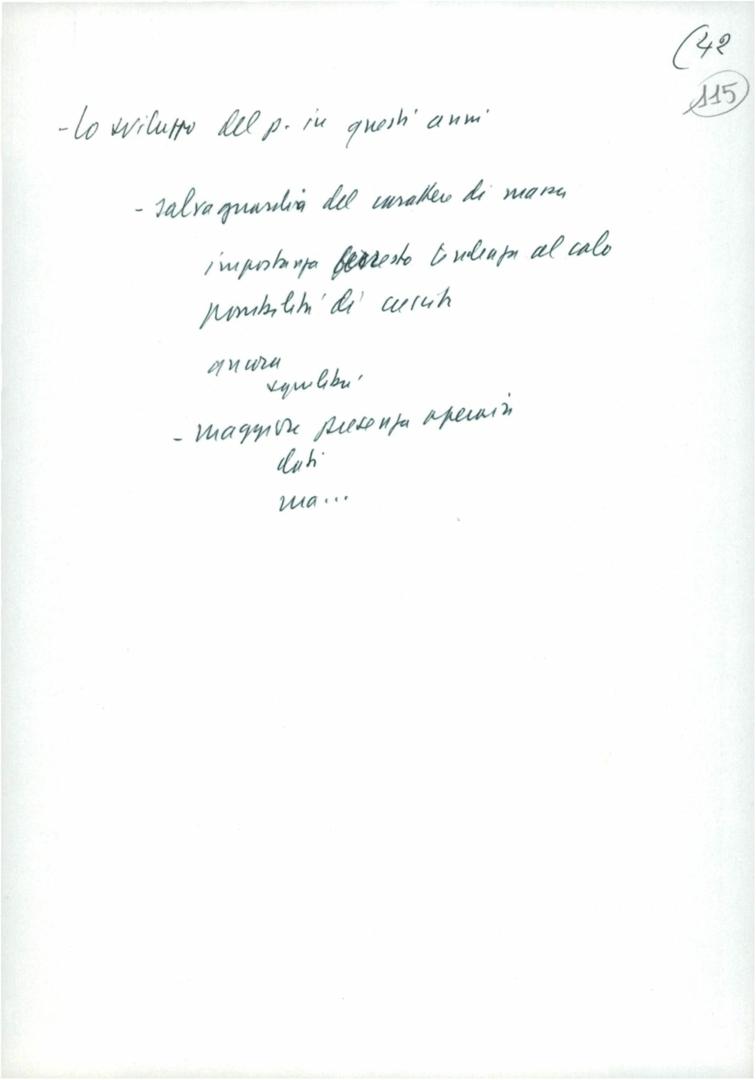 (42
115
- Lo sviluppo del p. in questi anni
- salvaguardia del carattere di massa
importanza arresto tendenza al calo
possibilità di crescita
ancora
squilibri
- maggiore presenza operaia
dati
ma...